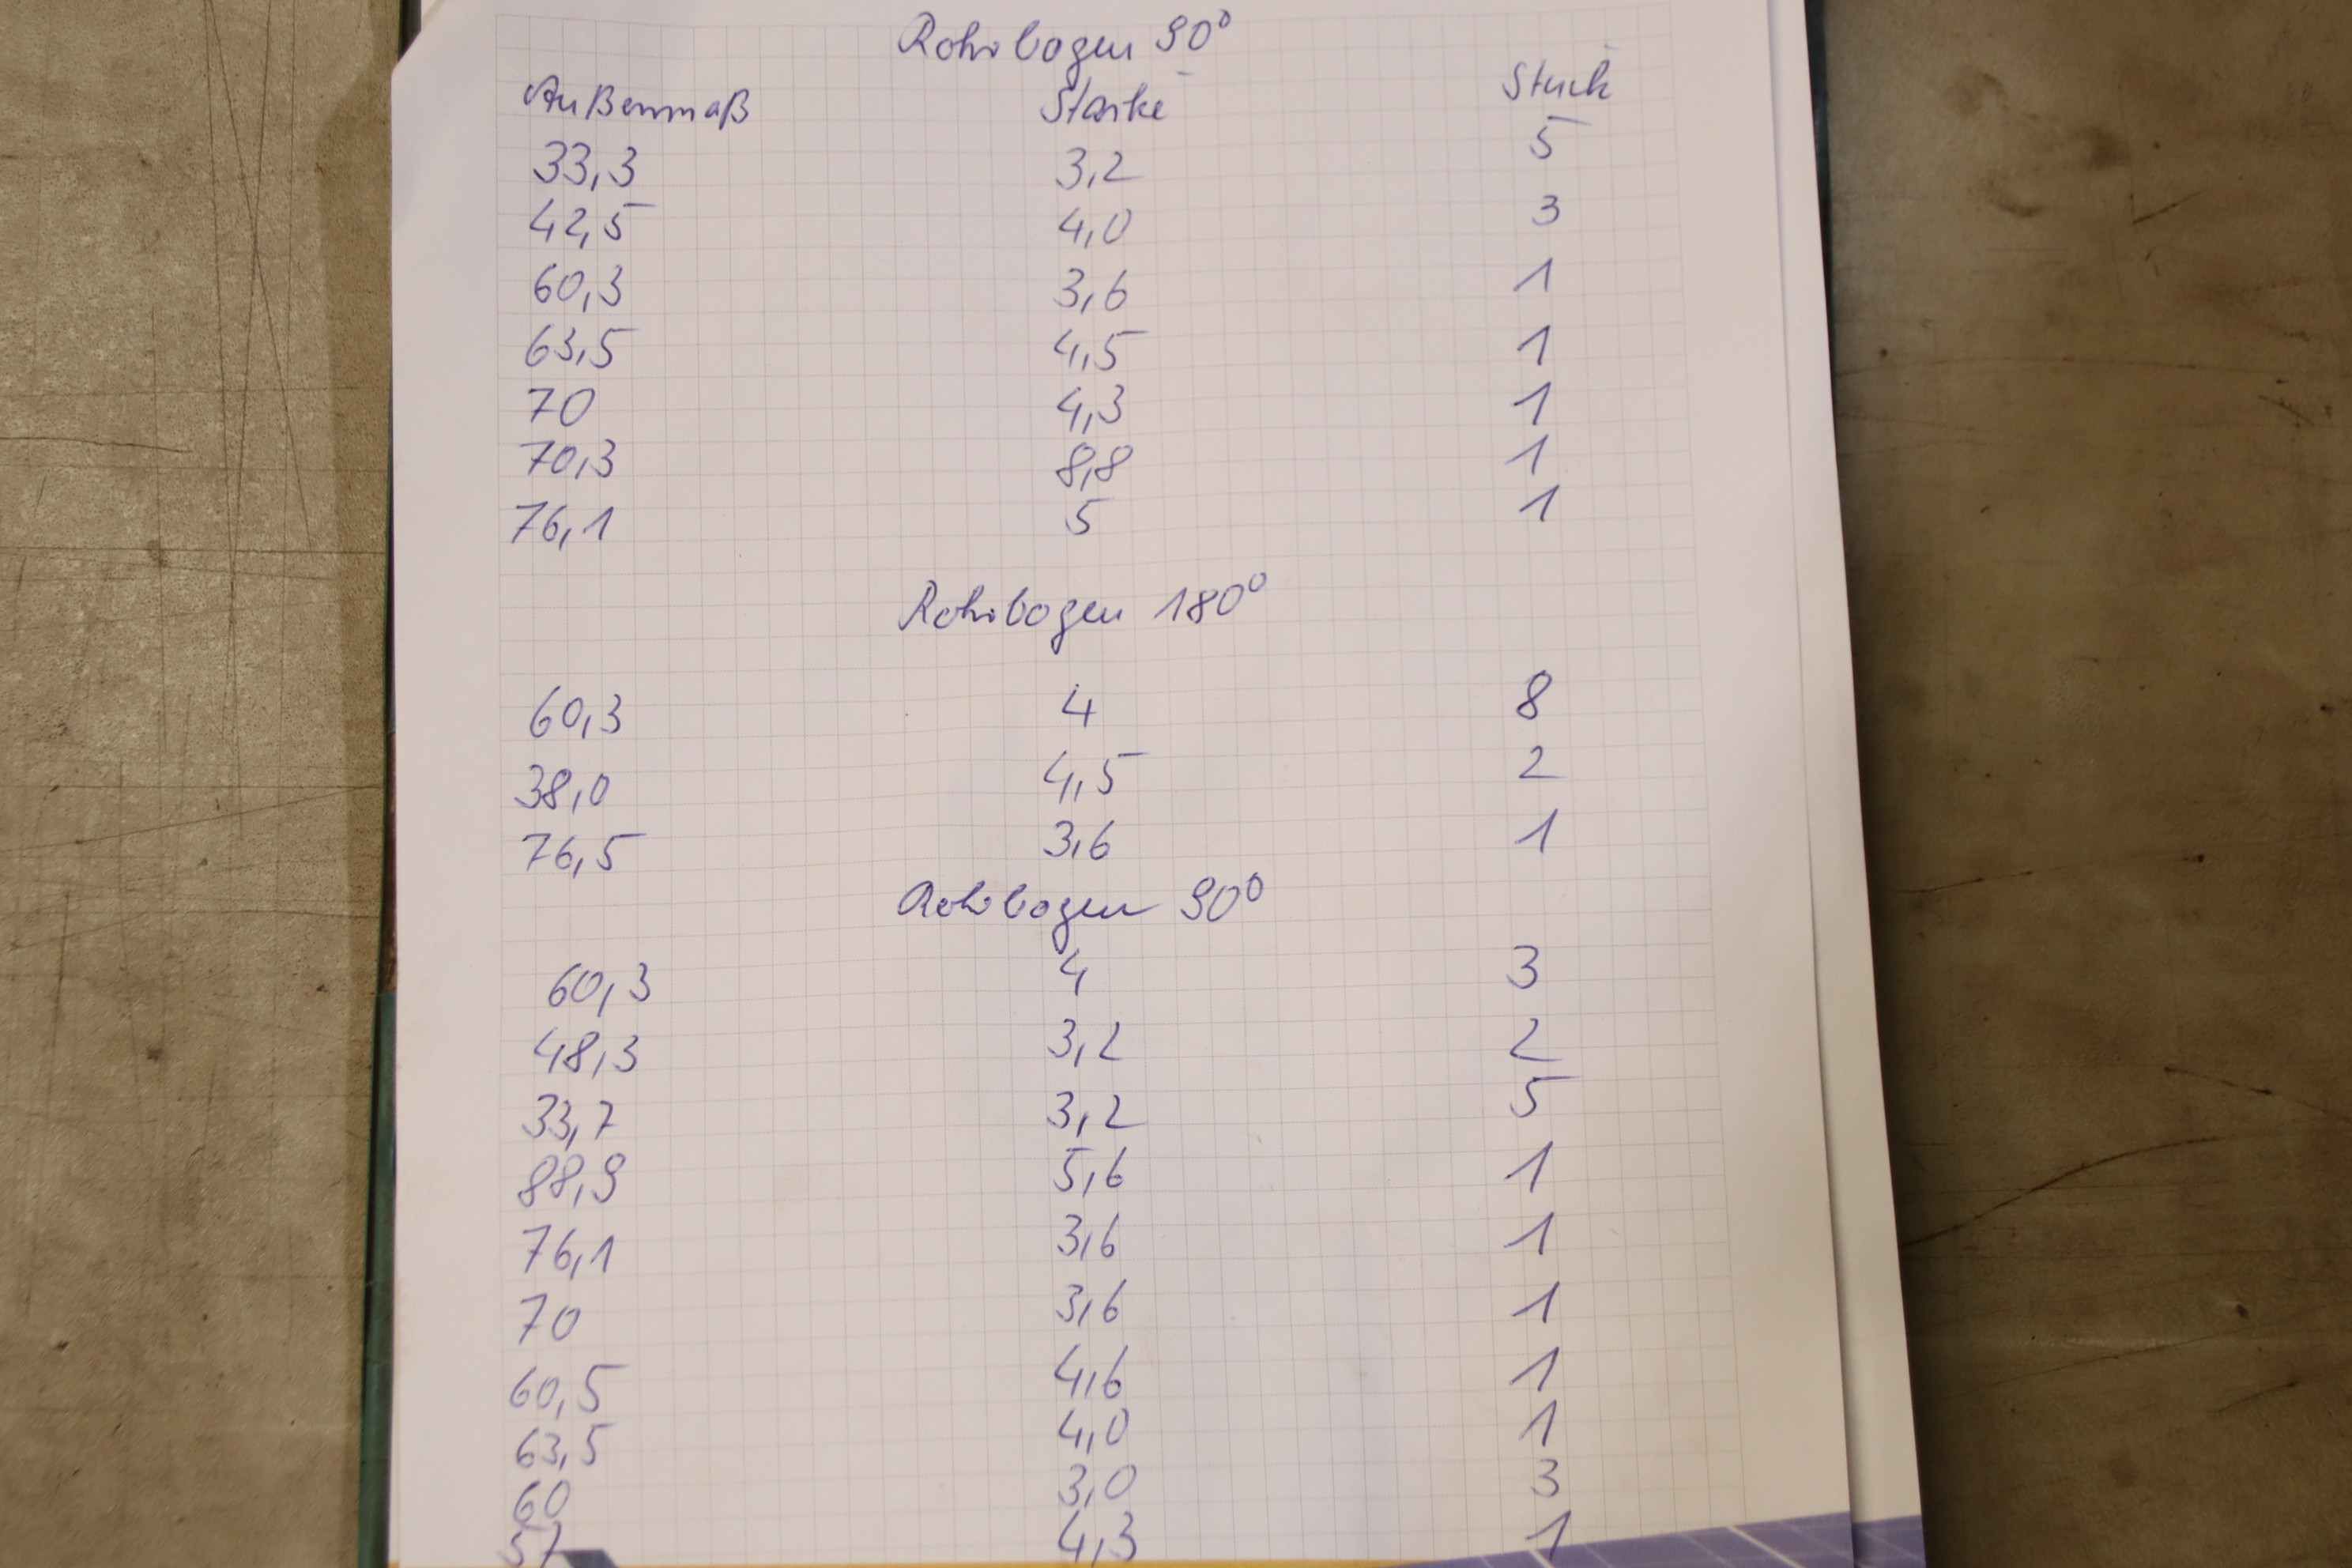 Rohrbogen 90°
Außenmaß Stärke Stück
33,3 3,2 5
42,5 4,0 3
60,3 3,6 1
63,5 4,5 1
70 4,3 1
70,3 8,8 1
76,1 5 1
Rohrbogen 180°
60,3 4 8
38,0 4,5 2
76,5 3,6 1
Rohrbogen 90°
60,3 4 3
48,3 3,2 2
33,7 3,2 5
88,9 5,6 1
76,1 3,6 1
70 3,6 1
60,5 4,6 1
63,5 4,0 1
60 3,0 3
57 4,3 1